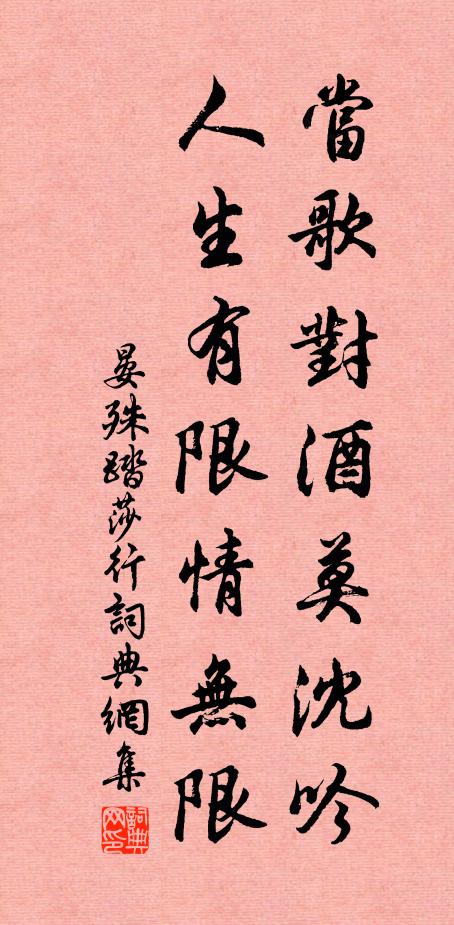 當歌對酒莫沈吟
人生有限情無限
晏殊踏莎行詞典網集
詞典
网印